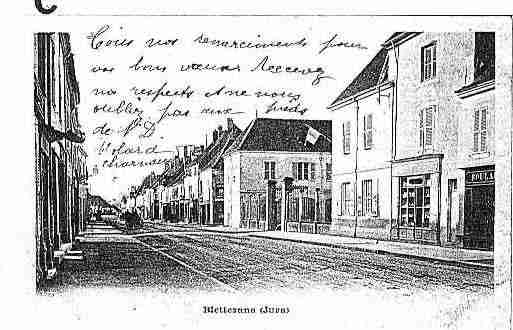 Tous nos remerciements pour
vos bons vœux Recevez
nos respects et ne nous
oubliez pas aux pieds
de N. D.
BOULA
Bletterans (Jura)